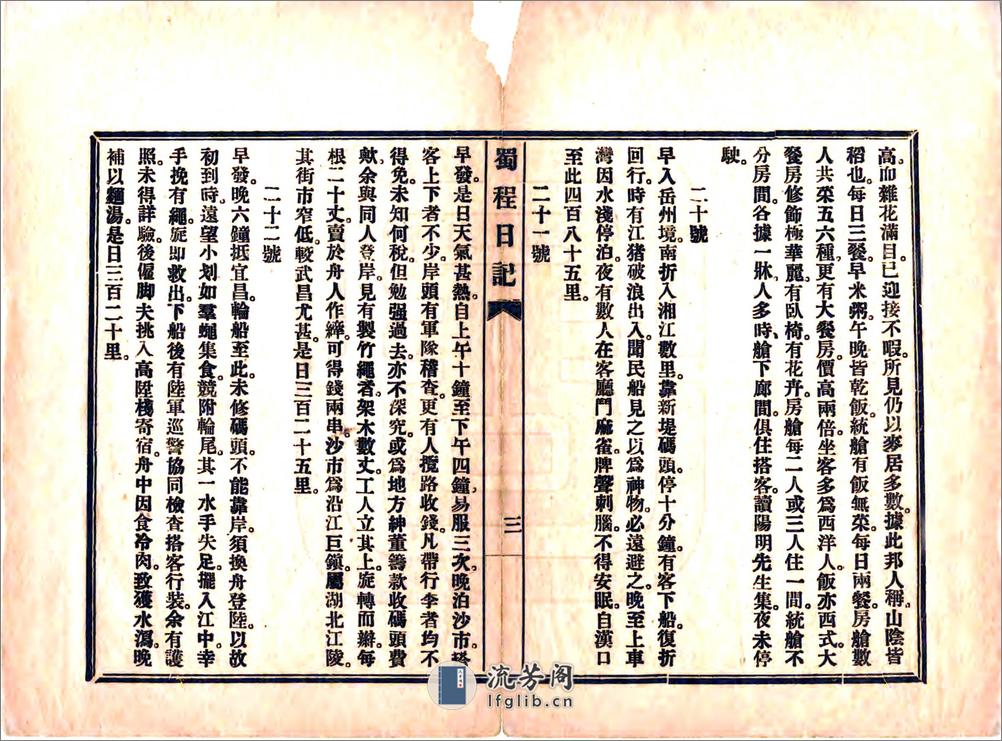 高而雜花滿目已迎接不暇。所見仍以麥居多數。據此邦人稱。山陰皆
稻也。每日三餐。早米粥。午晚皆乾飯。統艙有飯無菜。每日兩餐。房艙數
人共菜五六種。更有大餐房。價高兩倍。坐客多爲西洋人。飯亦西式。大
餐房修飾極華麗。有臥椅。有花卉。房艙每二人或三人住一間。統艙不
分房間。各據一牀。人多時。艙下廊間俱住搭客。讀陽明先生集。夜未停
駛。
二十號
早入岳州境。南折入湘江數里。靠新堤碼頭。停十分鐘。有客下船。復折
回行。時有江猪破浪出入。聞民船見之以爲神物。必遠避之。晚至上車
灣。因水淺停泊。夜有數人在客廳門麻雀。牌聲刺腦。不得安眠。自漢口
至此四百八十五里。
二十一號
蜀程日記
三
早發。是日天氣甚熱。自上午十鐘至下午四鐘。易服三次。晚泊沙市。搭
客上下者不少。岸頭有軍隊稽查。更有人攬路收錢。凡帶行李者。均不
得免。未知何稅。但勉强過去。亦不深究。或爲地方紳董籌款收碼頭費
歟。余與同人登岸。見有製竹繩者。架木數丈。工人立其上。旋轉而辮。每
根二十丈。賣於舟人作縴。可得錢兩串。沙市爲沿江巨鎮。屬湖北江陵。
其街市窄低。較武昌尤甚。是日三百二十五里。
二十二號
早發。晚六鐘抵宜昌。輪船至此。未修碼頭。不能靠岸。須換舟登陸。以故
初到時。遠望小划如羣蠅集食。競附輪尾。其一水手失足。擺入江中。幸
手挽有繩。旋即救出。下船後有陸軍巡警協同檢查搭客行裝。余有護
照。未得詳驗。後僱脚夫挑入高陞棧寄宿。舟中因食冷肉。致獲水瀉。晚
補以麵湯。是日三百二十里。
流芳阁
lfglib.cn